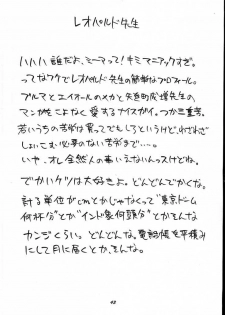 レオパルド先生
ハハハ 誰だよ、ミーマって！キミマニアックすぎ。
ってなワケでレオパルド先生の簡単なプロフィール。
プルマとエイオールのメカと
マンガをこよなく愛するナイスガイ。かつ三重苦。
若いうちの苦労は買ってでもしろというけど、わざわざ
しょいこむ必要のない苦労まで…。
いや、オレ全然人の事いえないんスけどね。
でかいケツは大好きよ。どんどんでかくな。
計る単位がcmとかじゃなくって"東京ドーム
何杯分"とか"インド象何頭分"とかそんな
カンジくらい。どんどんな。電話帳を平積み
にして月に届くとか、そんな。